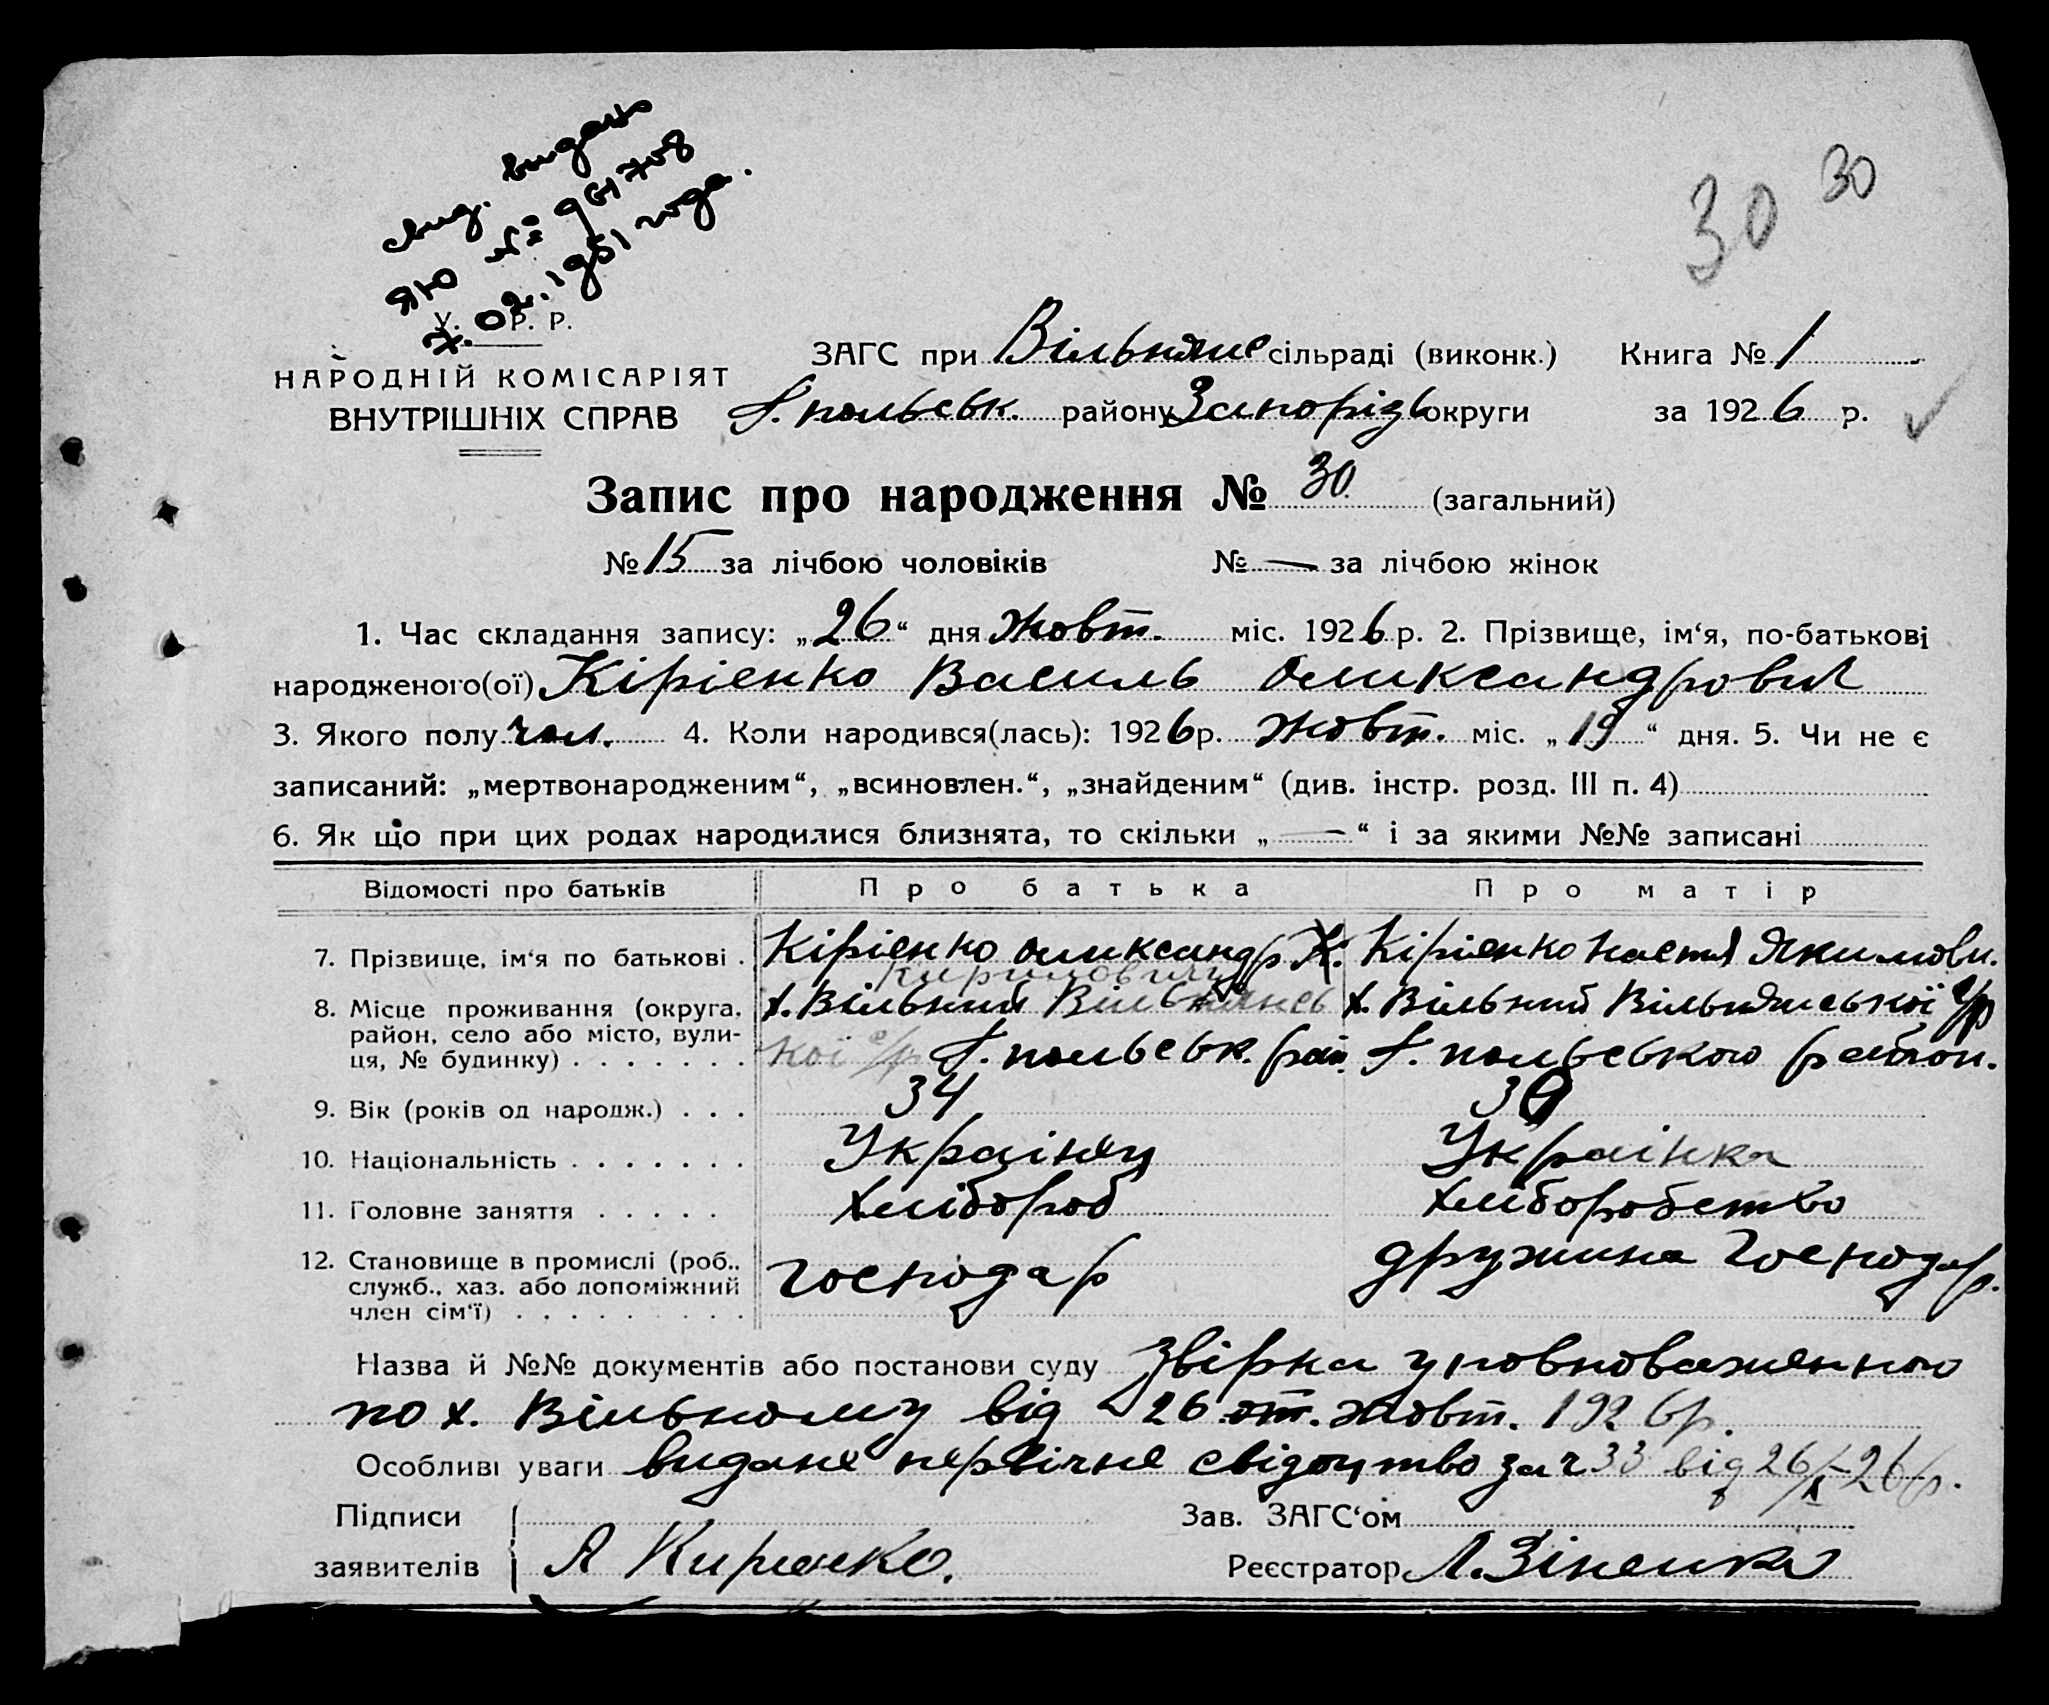 свид. видано
ЯЮ №
1951 года.
30 30
У. Р. Р.
НАРОДНІЙ КОМІСАРІЯТ
ВНУТРІШНІХ СПРАВ
ЗАГС при Вільнянс сільраді (виконк.) Книга № 1
польськ. району Запорізь округи за 1926 р.
Запис про народження № 30 (загальний)
№ 15 за лічбою чоловіків № — за лічбою жінок
1. Час складання запису: „26“ дня жовт. міс. 1926 р. 2. Прізвище, ім‘я, по-батькові
народженого(ої) Кірієнко Василь Олександрович
3. Якого полу чол. 4. Коли народився(лась): 1926 р. жовт. міс. „19“ дня. 5. Чи не є
записаний: „мертвонародженим“, „всиновлен.“, „знайденим“ (див. інстр. розд. III п. 4)
6. Як що при цих родах народилися близнята, то скільки „—“ і за якими №№ записані
Відомості про батьків Про батька Про матір
7. Прізвище, ім‘я по батькові . Кірієнко Олександр К. Кірієнко Настя Якимовн.
Кириловичу
8. Місце проживання (округа, х. Вільний Вільнянсь х. Вільний Вільнянської с/р
район, село або місто, вули-
ця, № будинку) . . . . . . . кої с/р польськ. рай. польського район.
9. Вік (років од народж.) . . . 34 30
10. Національність . . . . . . . Українец Українка
11. Головне заняття . . . . . Хлібороб Хліборобство
12. Становище в промислі (роб., господар дружина господар.
служб., хаз. або допоміжний
член сім‘ї) . . . . . . . . .
Назва й №№ документів або постанови суду Звірка уповноваженного
по х. Вільному від 26 жовт. 1926 р.
Особливі уваги видане первічне свідоцтво за ч 33 від 26/X-26 р.
Підписи Зав. ЗАГС‘ом
заявителів А Кириенко. Реєстратор Л. Зіненко